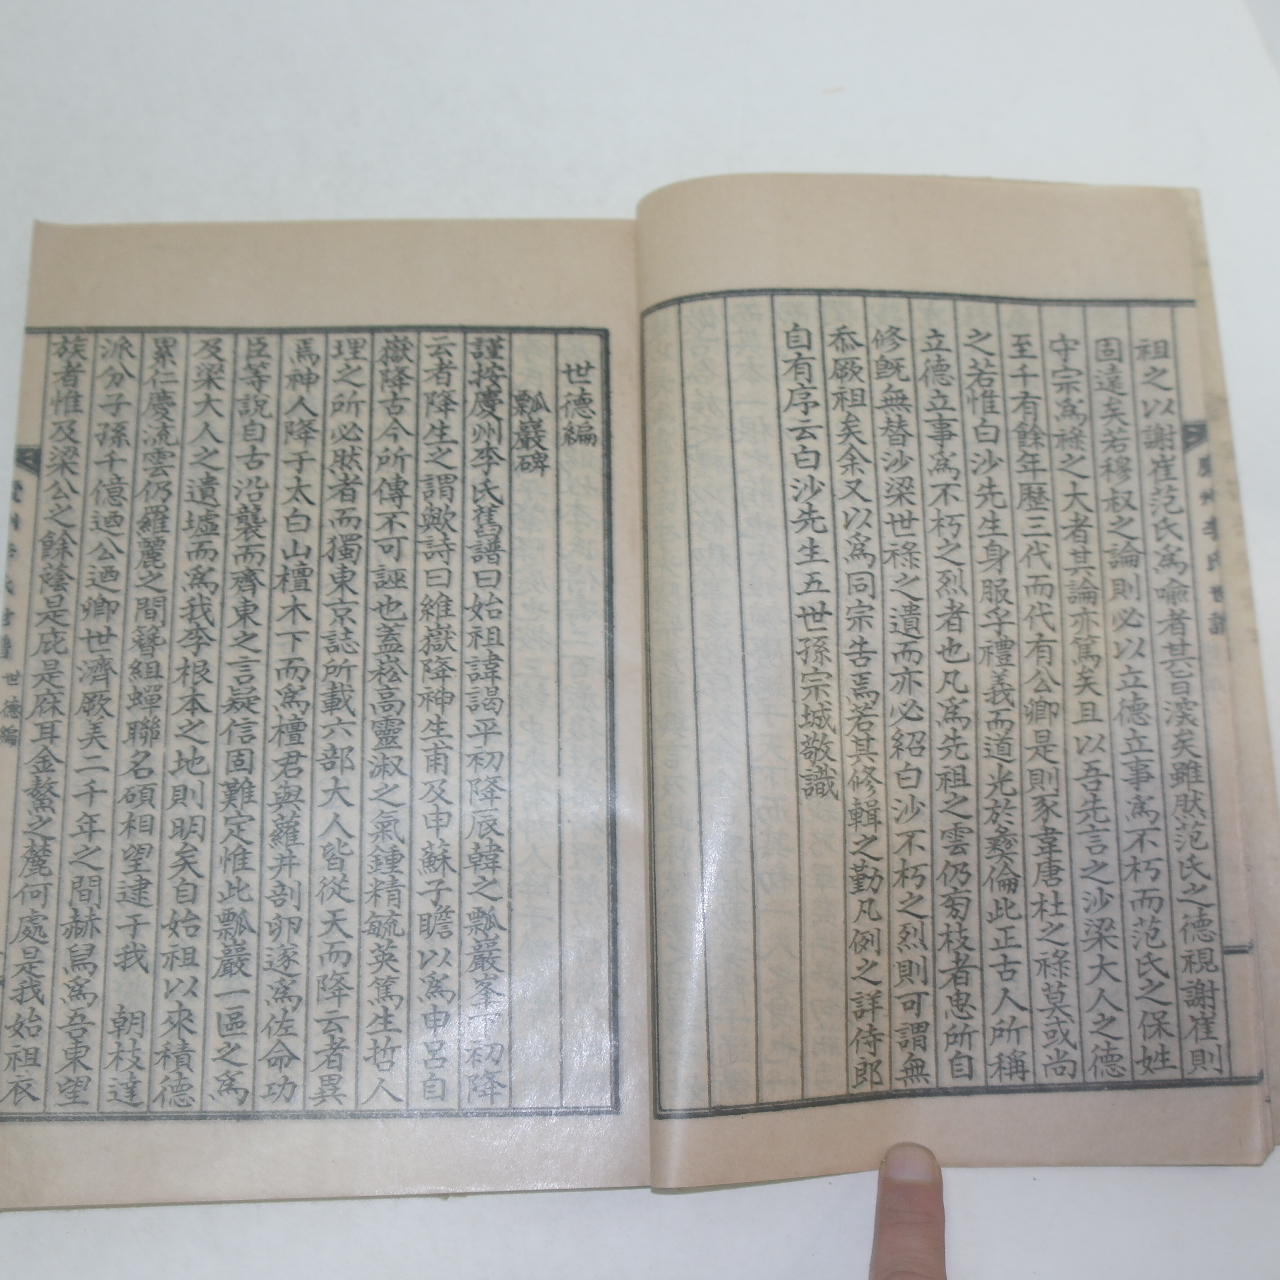 祖之以謝崔范氏爲喩者其旨深矣雖然范氏之德視謝崔則
固遠矣若穆叔之論則必以立德立事爲不朽而范氏之保姓
守宗爲祿之大者其論亦篤矣且以吾先言之沙梁大人之德
至千有餘年歷三代而代有公卿是則豕韋唐杜之祿莫或尚
之若惟白沙先生身服孚禮義而道光於彛倫此正古人所稱
立德立事爲不朽之烈者也凡爲先祖之雲仍匃枝者思所自
修旣無替沙梁世祿之遺而亦必紹白沙不朽之烈則可謂無
忝厥祖矣余又以爲同宗告焉若其修輯之勤凡例之詳侍郞
自有序云白沙先生五世孫宗城敬識
慶州李氏世譜
世德編
瓢巖碑
謹按慶州李氏舊譜曰始祖諱謁平初降辰韓之瓢巖峯下初降
云者降生之謂歟詩曰維嶽降神生甫及申蘇子瞻以爲申呂自
嶽降古今所傳不可誣也盖崧高靈淑之氣鍾精毓英篤生哲人
理之所必然者而獨東京誌所載六部大人皆從天而降云者異
焉神人降于太白山檀木下而爲檀君與蘿井剖卵遂爲佐命功
臣等說自古沿襲而齊東之言疑信固難定惟此瓢巖一區之爲
及梁大人之遺墟而爲我李根本之地則明矣自始祖以來積德
累仁慶流雲仍羅麗之間簪組蟬聯名碩相望逮于我 朝枝達
派分子孫千億迺公迺卿世濟厥美二千年之間赫舃爲吾東望
族者惟及梁公之餘蔭是庇是庥耳金鰲之麓何處是我始祖衣
世德編